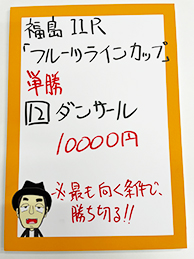 福島 11R
「フルーツラインカップ」
単勝
12 ダンサール
10000円
※最も向く条件で、
勝ち切る!!